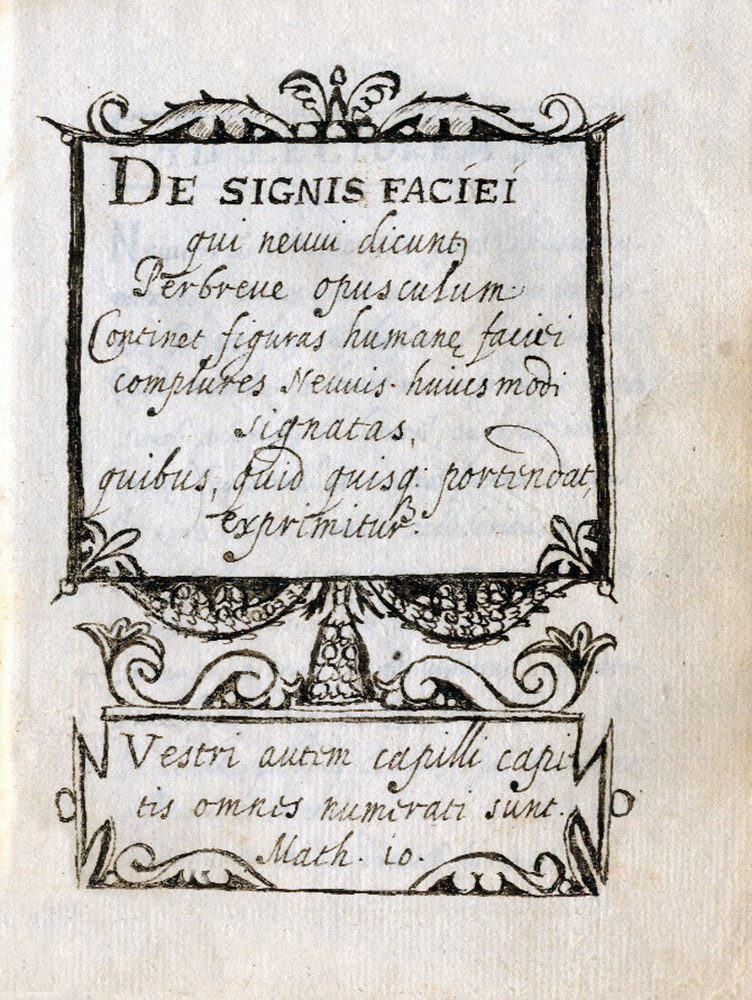 DE SIGNIS FACIEI
qui nevui dicunt
Perbreue opusculum
Continet figuras humanę faciei
complures Nevuis huiusmodi
signatas,
quibus, quid quisq: portendat,
exprimitur.
Vestri autem capilli capi
tis omnes numerati sunt.
Math. 10.